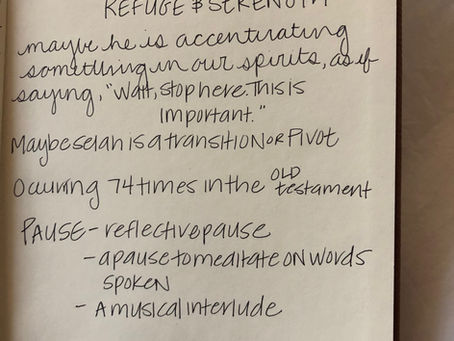 REFUGE & STRENGTH
maybe he is accentuating
something in our spirits, as if
saying, "Wait, stop here. This is
important."
Maybe selah is a transition or pivot
Occuring 74 times in the OLD testament
PAUSE - reflective pause
- a pause to meditate on words
spoken
- A musical interlude